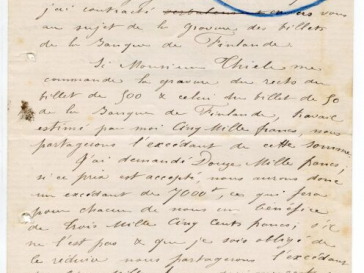 j'ai contracté envers vous
au sujet de la gravure des billets
de la Banque de Finlande.
Si Monsieur Thiele me
commande la gravure du recto du
billet de 500 & celui du billet de 50
de la Banque de Finlande, travail
estimé par moi Cinq Mille francs, nous
partagerons l'excédant de cette somme.
J'ai demandé Douze Mille francs;
si ce prix est accepté, nous aurons donc
un excédant de 7000f, ce qui fera
pour chacun de nous un bénéfice
de trois Mille Cinq Cents francs; s'il
ne l'est pas & que je sois obligé de
le réduire nous partagerons l'excédant